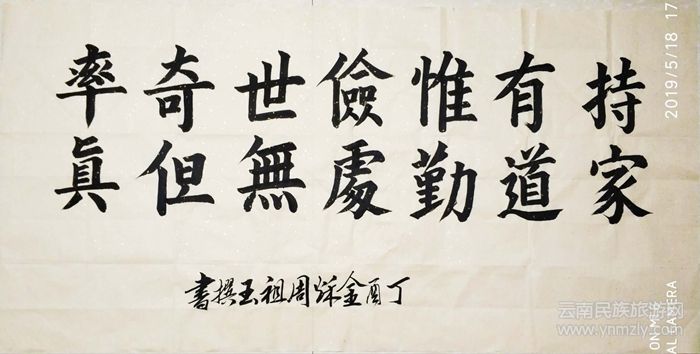 持家
有道
惟勤
儉處
世無
奇但
率眞
丁酉金秌周祖玉撰書
2019/5/18 17
云南民族旅游网
www.ynmzly.com
CAMERA